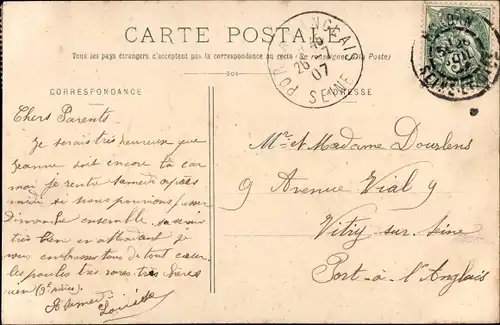 CARTE POSTALE
Tous les pays étrangers n'acceptent pas la correspondance au recto (Se renseigner à la Poste)
PORT A L'ANGLAIS
26
07
SEINE
CORRESPONDANCE
ADRESSE
Chers Parents
Je serais très heureux que
Jeanne soit encore là car
moi je rentre samedi
midi si nous pouvions passer
Dimanche ensemble
très bien en attendant je
vous embrasse tous de tout cœur
les poules très rares très chères
Mr et Madame Dourlens
9 Avenue Vial 9
Vitry sur Seine
Port à l'Anglais